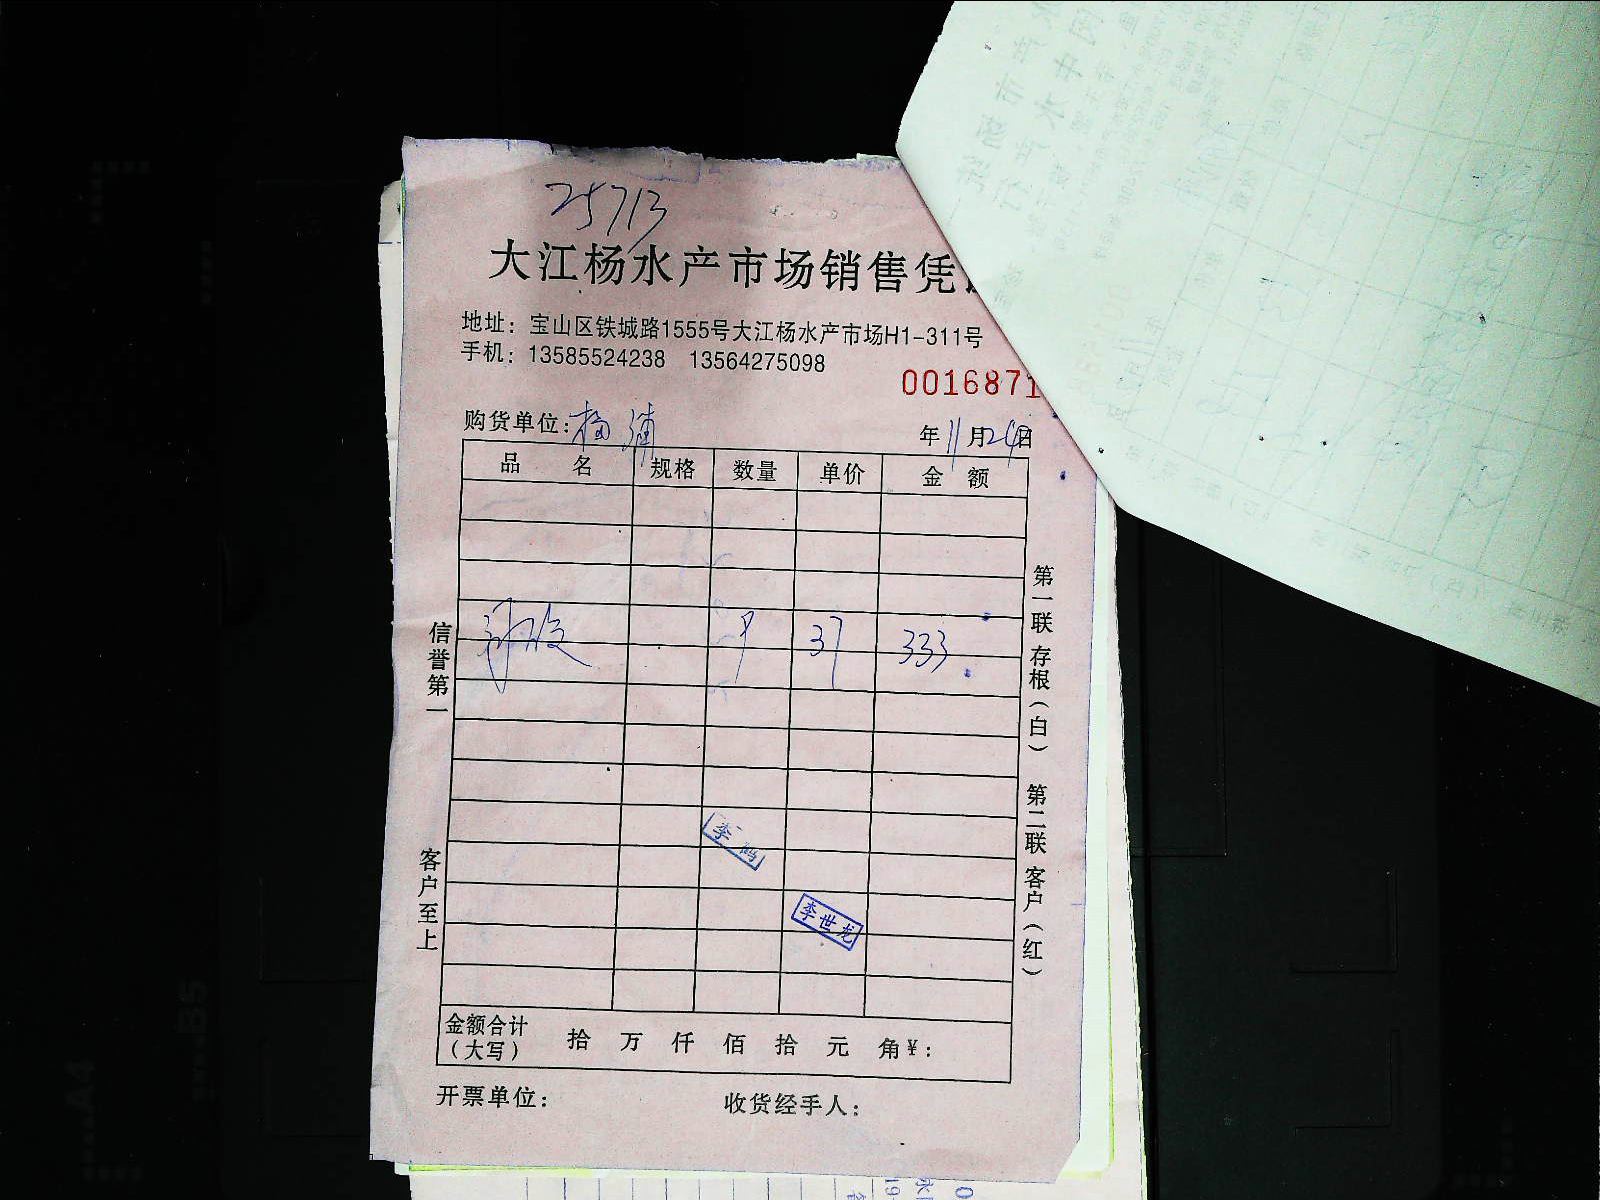 25713
大江杨水产市场销售凭
地址：宝山区铁城路1555号大江杨水产市场H1-311号
手机：13585524238 13564275098
0016871
购货单位：杨浦 年11月24日
品 名 规格 数量 单价 金 额
9 37 333
信誉第一
客户至上
第一联 存根（白） 第二联 客户（红）
李世龙
金额合计（大写） 拾 万 仟 佰 拾 元 角¥：
开票单位： 收货经手人：
A4
B5